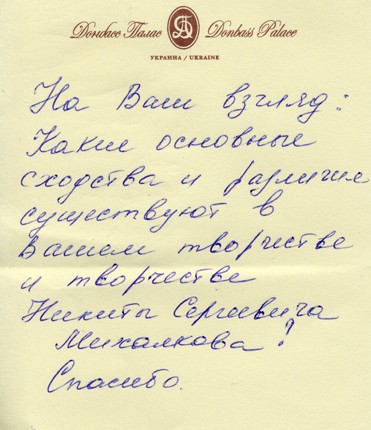 Донбасс Палас Donbass Palace
УКРАИНА / UKRAINE
На Ваш взгляд:
Какие основные
сходства и различие
существуют в
Вашем творчестве
и творчестве
Никиты Сергеевича
Михалкова?
Спасибо.